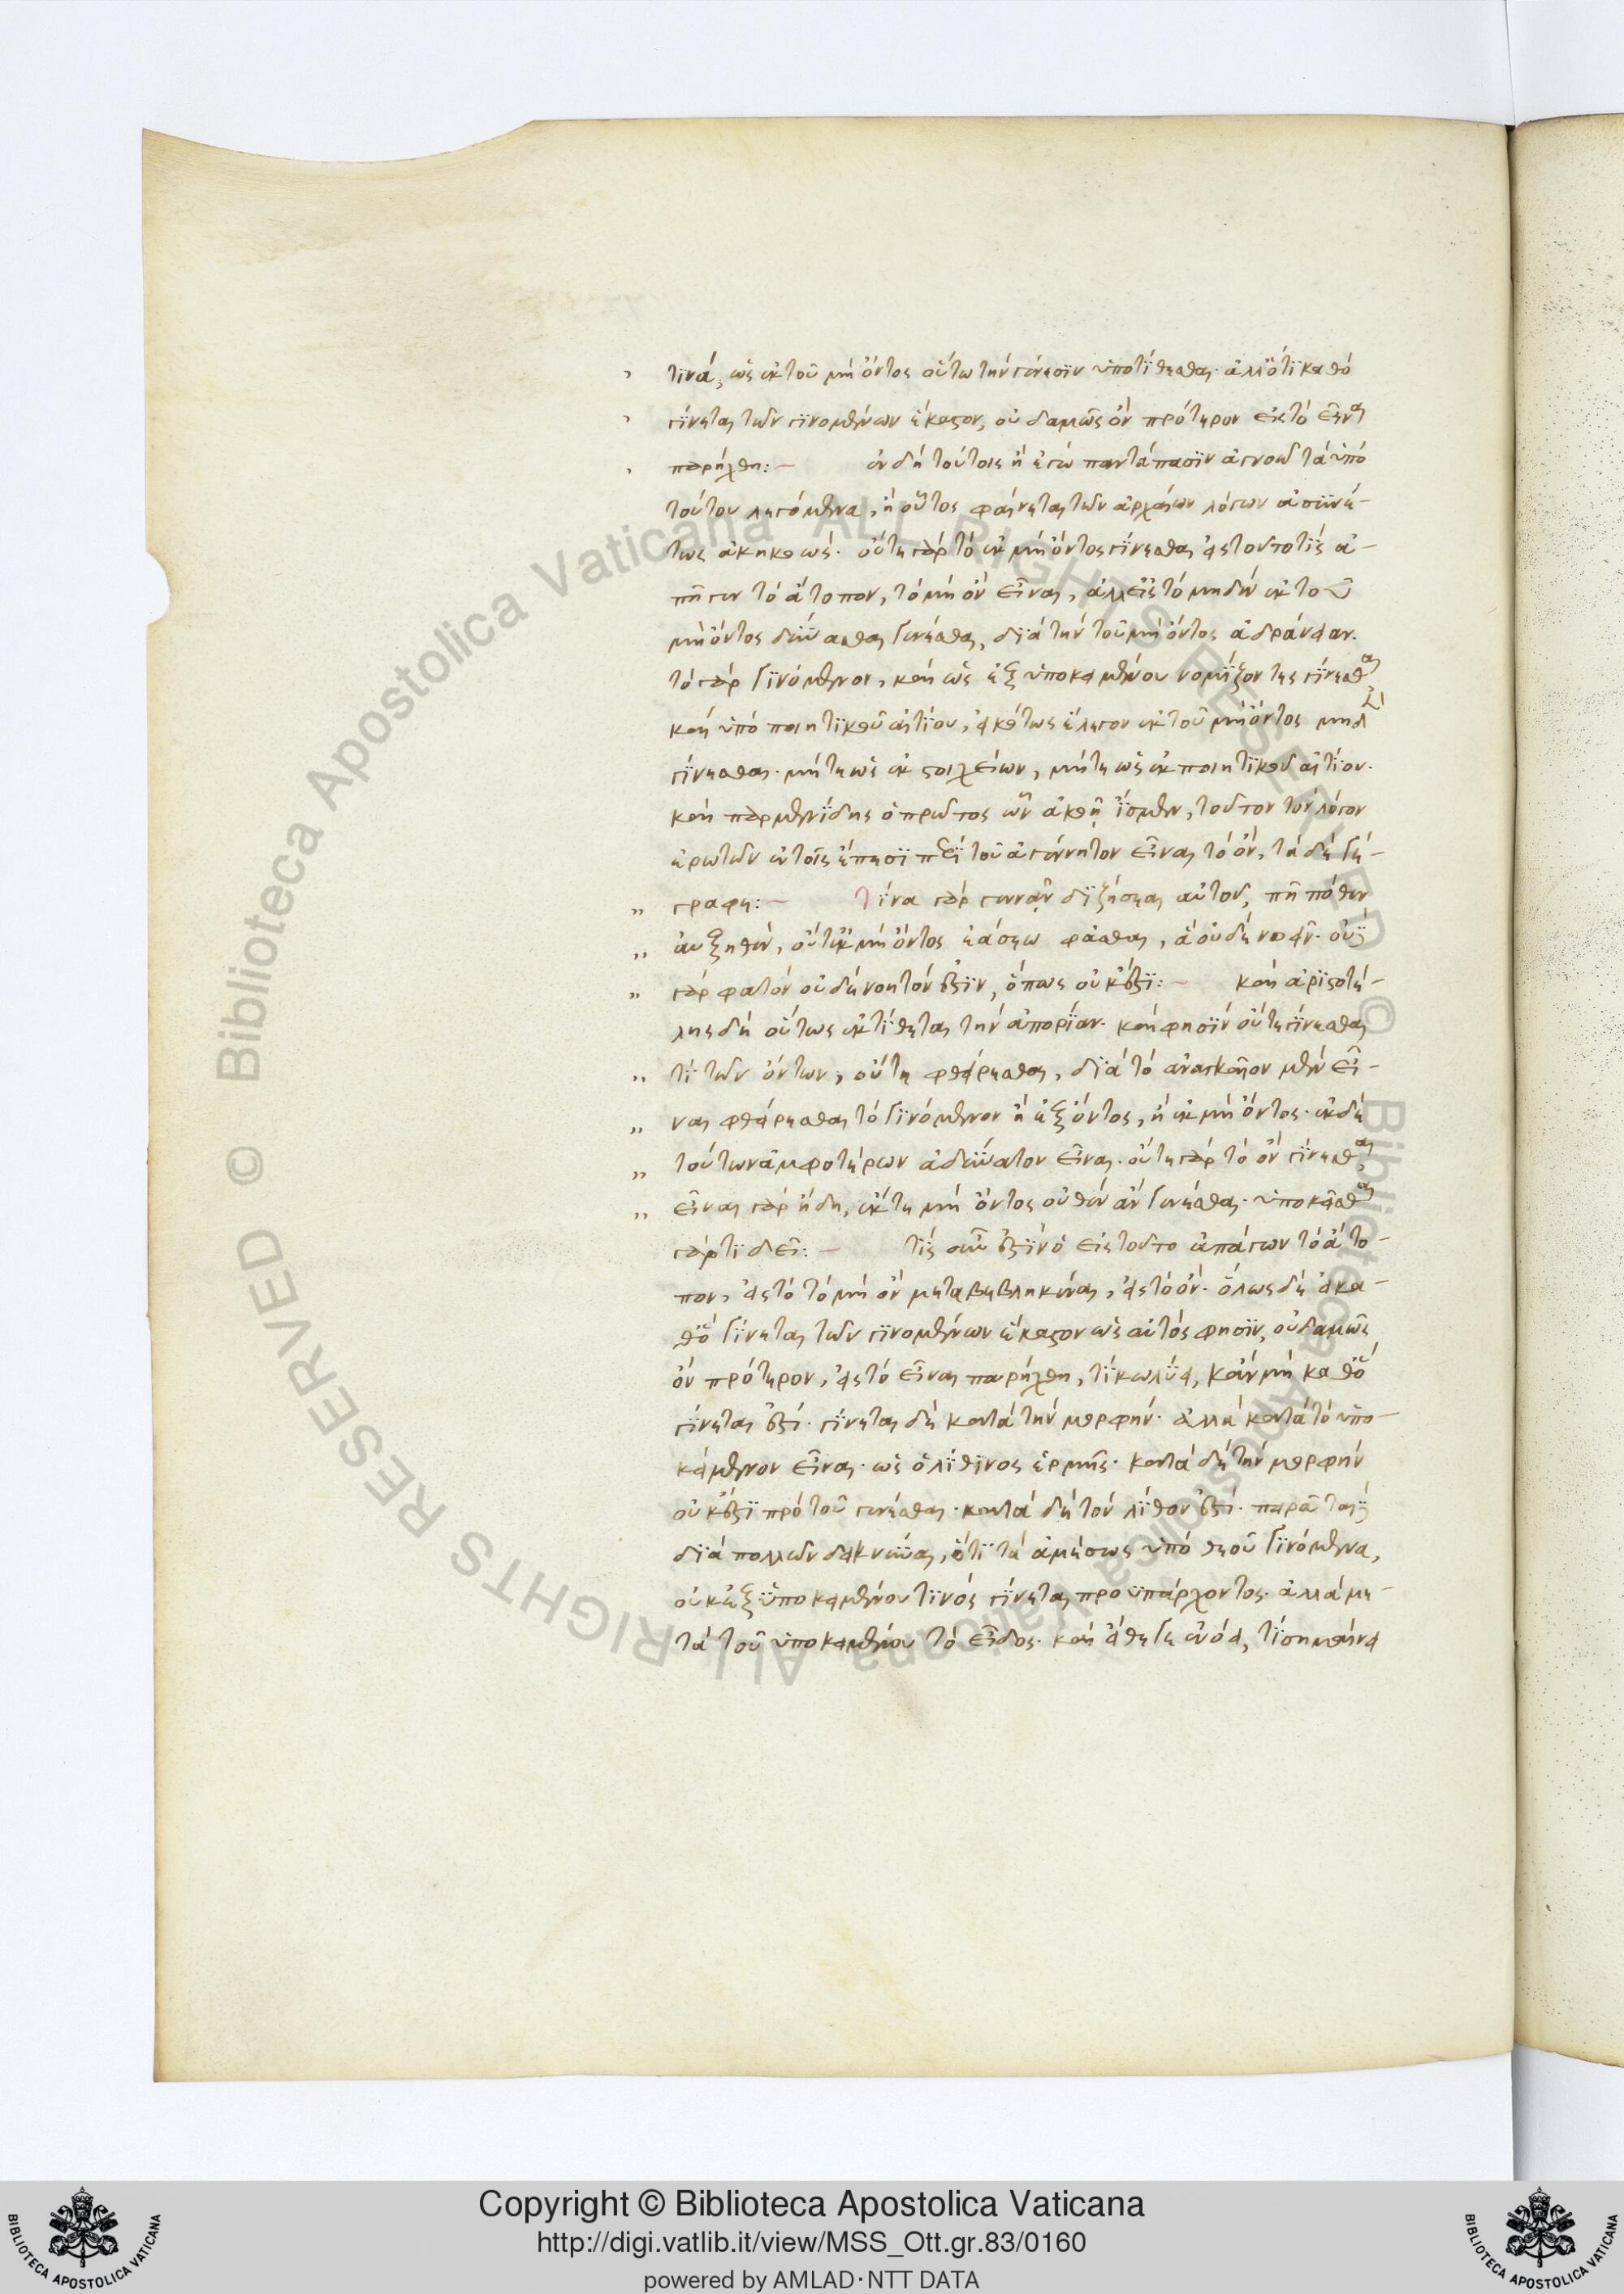 τινά, ὡς ἐκ τοῦ μὴ ὄντος οὕτω τὴν γένεσιν ὑποτίθεσθαι. ἀλλ' ὅτι καθό
γίνεται τῶν γινομένων ἕκαστον, οὐδαμῶς ὂν πρότερον εἰς τὸ εἶναι
παρήχθη:– ἐν δὴ τούτοις ἢ ἐγὼ παντάπασιν ἀγνοῶ τὰ ὑπὸ
τούτου λεγόμενα, ἢ οὗτος φαίνεται τῶν ἀρχαίων λόγων ἀσυνέ-
τως ἀκηκοώς. οὔτε γὰρ τὸ ἐκ μὴ ὄντος γίνεσθαι εἰς τοῦτο τίς ἀ-
πῆγεν τὸ ἄτοπον, τὸ μὴ ὂν εἶναι, ἀλλ' εἰς τὸ μηδὲν ἐκ τοῦ
μὴ ὄντος δύνασθαι γενέσθαι, διὰ τὴν τοῦ μὴ ὄντος ἀδράνειαν.
τὸ γὰρ γινόμενον, καὶ ὡς ἐξ ὑποκειμένου νομίζοντες γίνεσθαι
καὶ ὑπὸ ποιητικοῦ αἰτίου, εἰκότως ἔλεγον ἐκ τοῦ μὴ ὄντος μηδὲν
γίνεσθαι. μήτε ὡς ἐκ στοιχείων, μήτε ὡς ἐκ ποιητικοῦ αἰτίου.
καὶ παρμενίδης ὁ πρῶτος ὧν ἀκοῇ ἴσμεν, τοῦτον τὸν λόγον
ἐρωτῶν ἐν τοῖς ἔπεσι περὶ τοῦ ἀγέννητον εἶναι τὸ ὄν, τάδε γέ-
γραφε:– τίνα γὰρ γενναν διζήσεαι αὐτοῦ, πῆ πόθεν
αὐξηθέν, οὔτ' ἐκ μὴ ὄντος ἐάσσω φάσθαι, ἃ οὐδὲ νοεῖν. οὐ
γὰρ φατὸν οὐδὲ νοητόν ἐστιν, ὅπως οὐκ ἔστι:– καὶ ἀριστοτέ-
λης δὲ οὕτως ἐκτίθεται τὴν ἀπορίαν. καὶ φησὶν οὔτε γίνεσθαι
τι τῶν ὄντων, οὔτε φθείρεσθαι, διὰ τὸ ἀναγκαῖον μὲν εἶ-
ναι φθείρεσθαι τὸ γινόμενον ἢ ἐξ ὄντος, ἢ ἐκ μὴ ὄντος. ἐκ δὲ
τούτων ἀμφοτέρων ἀδύνατον εἶναι. οὔτε γὰρ τὸ ὂν γίνεσθαι,
εἶναι γὰρ ἤδη, ἔκ τε μὴ ὄντος οὐθὲν ἂν γενέσθαι. ὑποκεῖσθαι
γάρ τι δεῖ:– τίς οὖν ἐστιν ὁ εἰς τοῦτο ἀπάγων τὸ ἄτο-
πον, εἰς τὸ τὸ μὴ ὂν μεταβεβληκέναι, εἰς τὸ ὄν. ὅλως δὲ εἰ κα-
θὸ γίνεται τῶν γινομένων ἕκαστον ὡς αὐτός φησιν, οὐδαμῶς
ὂν πρότερον, εἰς τὸ εἶναι παρήχθη, τί κωλύει, κἂν μὴ καθὸ
γίνεται ἐστί. γίνεται δὲ κατὰ τὴν μορφήν. ἀλλὰ κατὰ τὸ ὑπο-
κείμενον εἶναι. ὡς ὁ λίθινος ἑρμῆς. κατὰ δὲ τὴν μορφὴν
οὐκ ἔστι πρὸ τοῦ γενέσθαι. κατὰ δὲ τὸν λίθον ἐστί. παρεὶς
διὰ πολλῶν δεικνύναι, ὅτι τὰ ἀμέσως ὑπὸ θεοῦ γινόμενα,
οὐκ ἐξ ὑποκειμένου τινός γίνεται προϋπάρχοντος. ἀλλὰ με-
τὰ τοῦ ὑποκειμένου τὸ εἶδος. καὶ εἴθε γε ἐνόει, τί σημαίνει